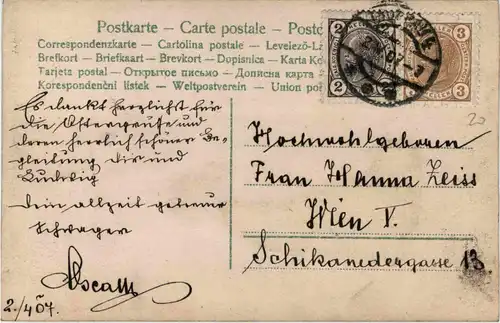 Postkarte — Carte postale — Postc
Correspondenzkarte — Cartolina postale — Levelező-L
Brefkort — Briefkaart — Brevkort — Dopisnica — Karta Ko
Tarjeta postal — Открытое письмо — Дописна карта
Korespondenční lístek — Weltpostverein — Union po
2 2 3 3
2 2 3 3
20
Es dankt herzlichst für
die Ostergrüße und
deren herrlich schöner Be-
gleitung dir und
Ludwig
dein allzeit getreuer
Schwager
Oscar
2./4 07.
Hochwohlgeboren
Frau Hanna Zeiss
Wien V.
Schikanedergasse 13.